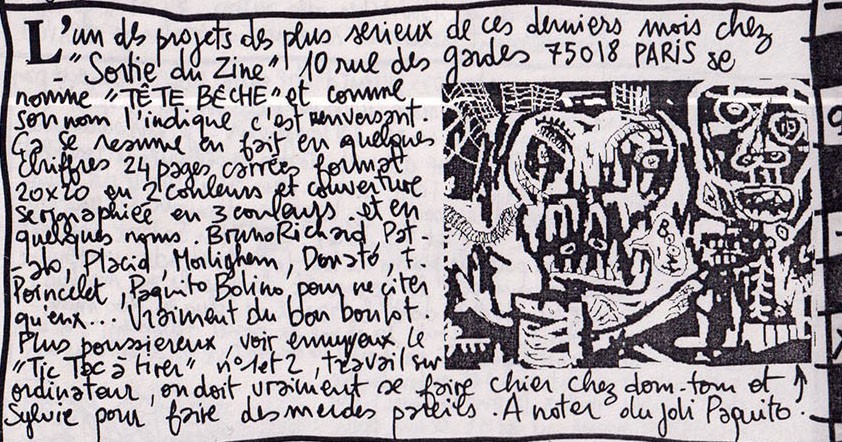 L'un des projets des plus serieux de ces derniers mois chez
- "Sortie du Zine" 10 rue des gardes 75018 PARIS se
nomme "TÊTE BÊCHE" et comme
son nom l'indique c'est renversant.
Ça se resume en fait en quelques
chiffres 24 pages carrées format
20x20 en 2 couleurs et couverture
serigraphiée en 3 couleurs. et en
quelques noms. Bruno Richard, Pat-
-ab, Placid, Morlighem, Donato, F.
Poincelet, Paquito Bolino pour ne citer
qu'eux... Vraiment du bon boulot.
Plus poussiereux, voir ennuyeux le
"Tic Toc à tirer" n°1 et 2, travail sur
ordinateur, on doit vraiment se faire chier chez dom-tom et
Sylvie pour faire des merdes pareils. A noter du joli Paquito.